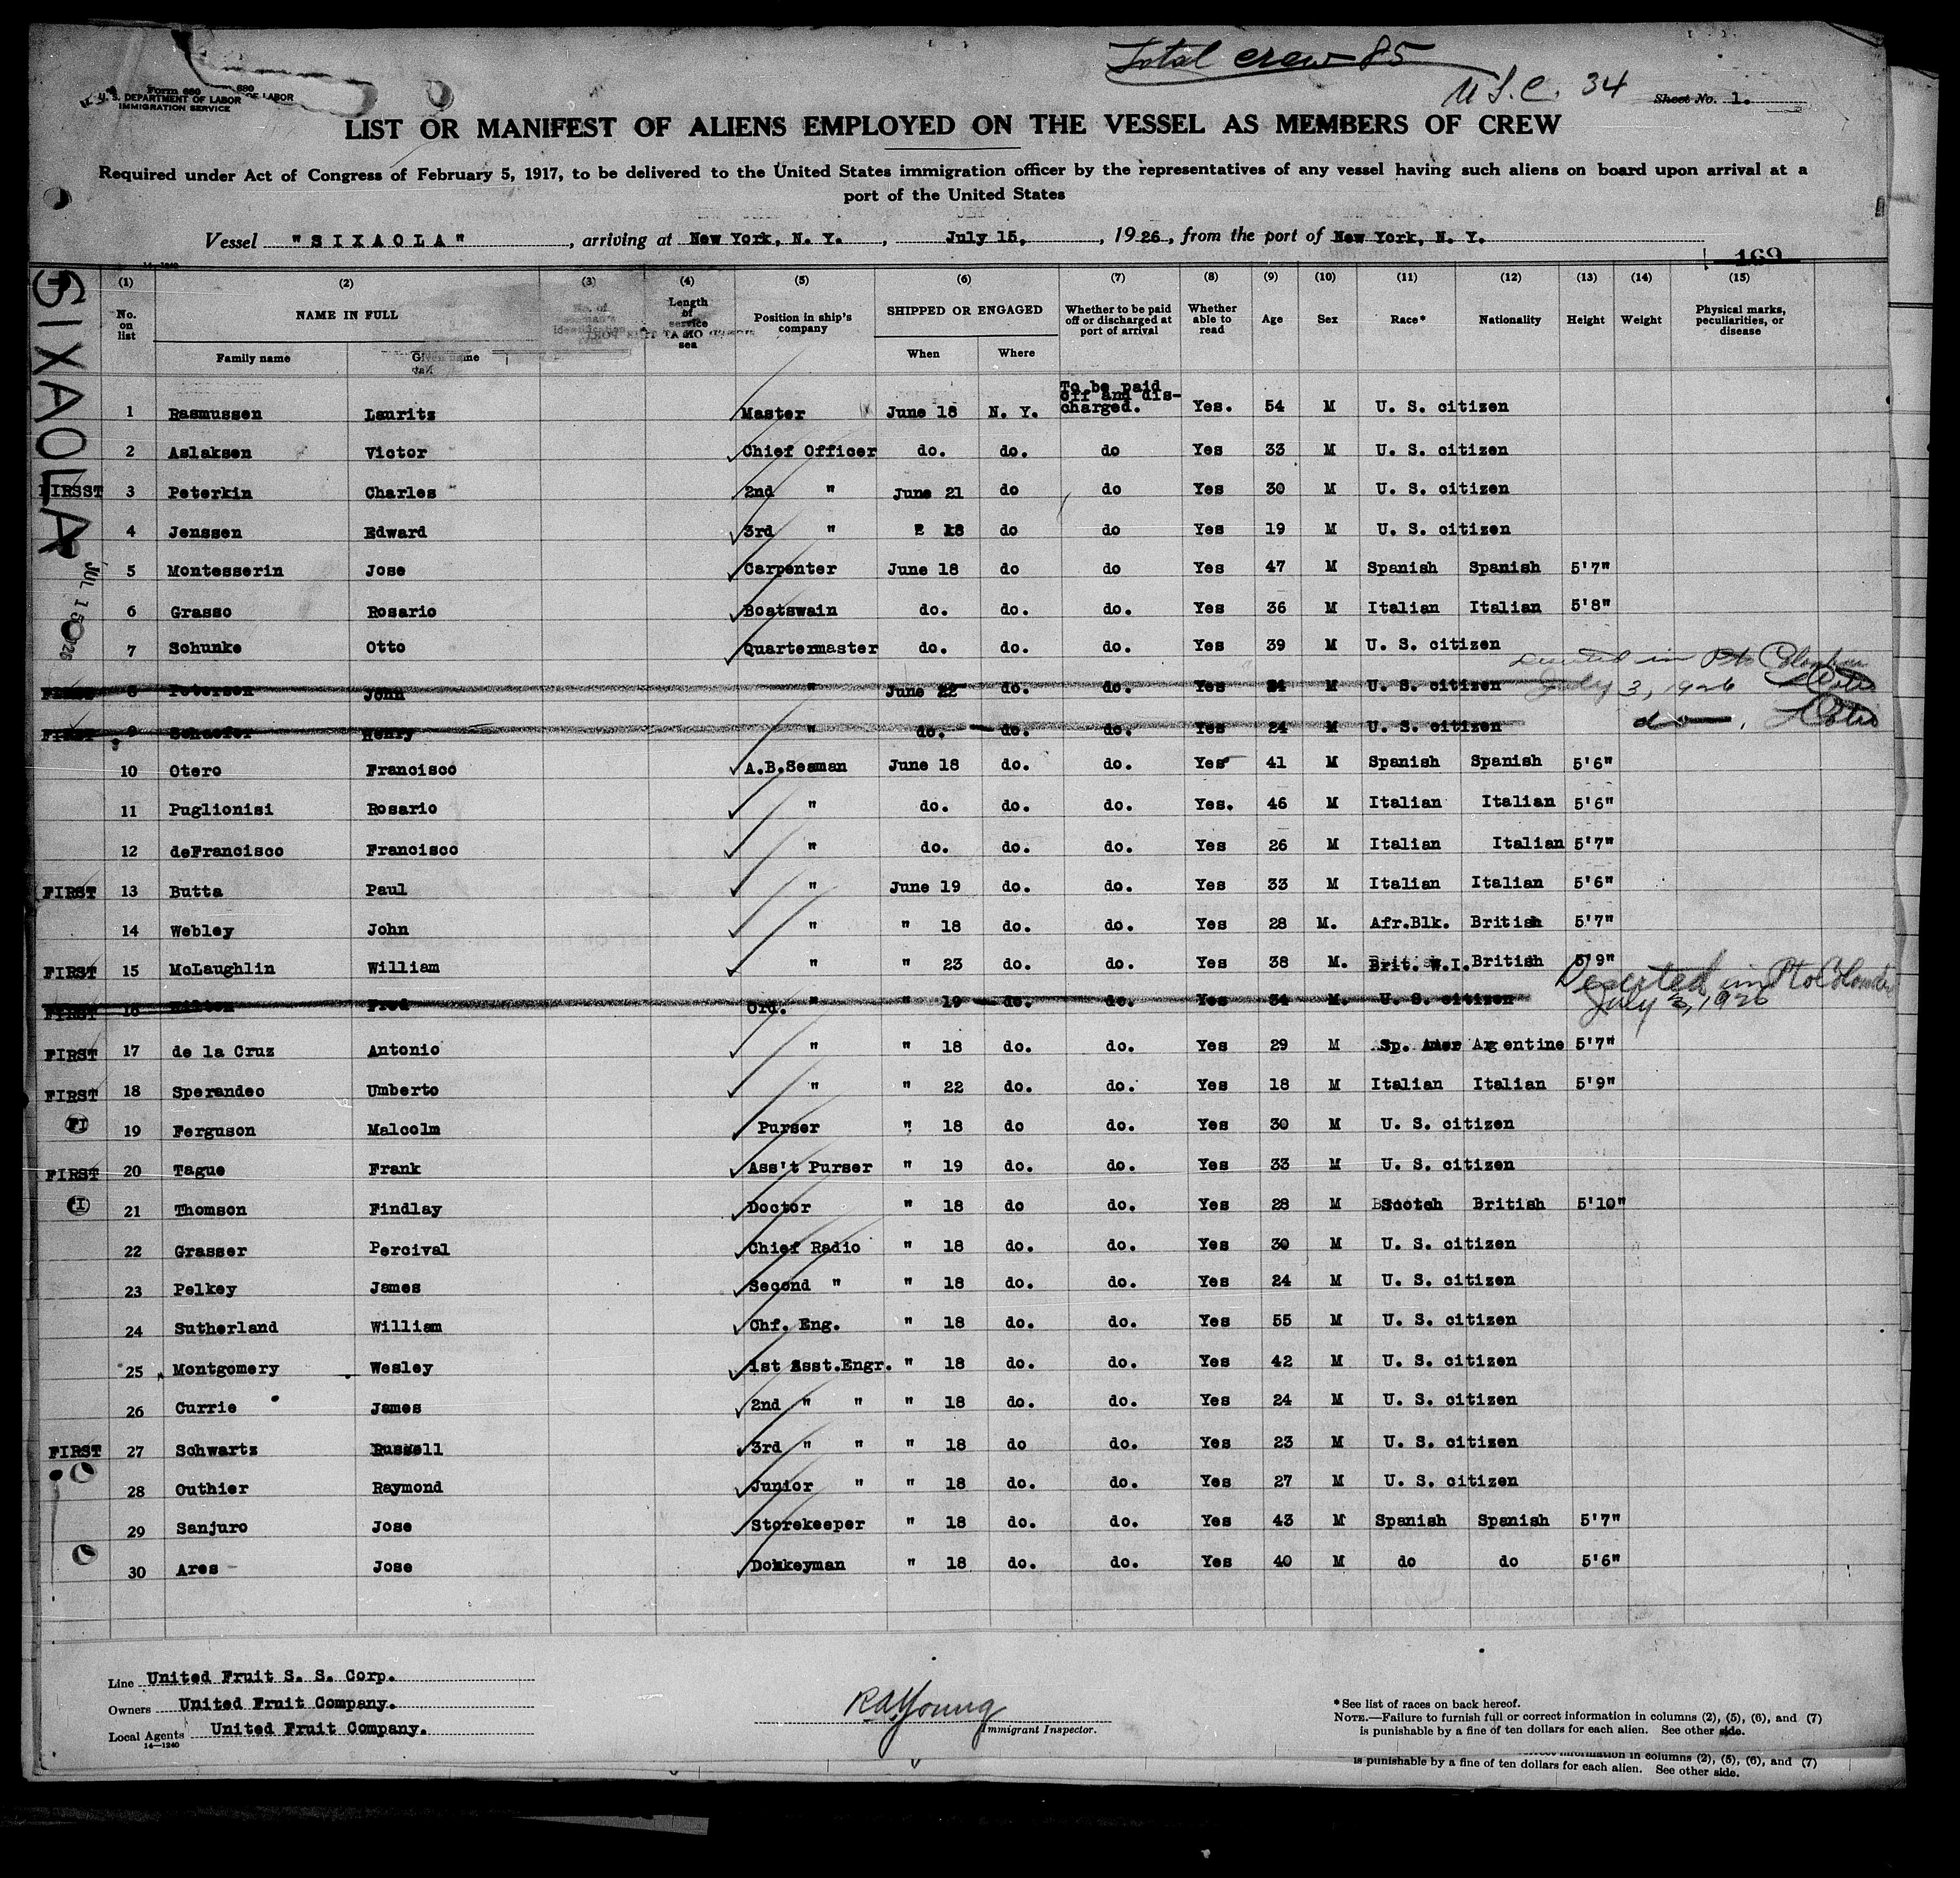 Total crew 85
U.S.C. 34
Form 680
U. S. DEPARTMENT OF LABOR
IMMIGRATION SERVICE
Sheet No. 1.
LIST OR MANIFEST OF ALIENS EMPLOYED ON THE VESSEL AS MEMBERS OF CREW
Required under Act of Congress of February 5, 1917, to be delivered to the United States immigration officer by the representatives of any vessel having such aliens on board upon arrival at a
port of the United States
Vessel "SIXAOLA", arriving at New York, N. Y., July 15, 1926, from the port of New York, N. Y.
169
SIXAOLA
JUL 15 1926
(1) (2) (3) (4) (5) (6) (7) (8) (9) (10) (11) (12) (13) (14) (15)
No. on list NAME IN FULL Length of service at sea Position in ship's company SHIPPED OR ENGAGED Whether to be paid off or discharged at port of arrival Whether able to read Age Sex Race* Nationality Height Weight Physical marks, peculiarities, or disease
Family name Given name When Where
1 Rasmussen Lauritz Master June 18 N. Y. To be paid off and discharged. Yes. 54 M U. S. citizen
2 Aslaksen Victor Chief Officer do. do. do Yes 33 M U. S. citizen
FIRSST 3 Peterkin Charles 2nd " June 21 do do Yes 30 M U. S. citizen
4 Jenssen Edward 3rd " 18 do do Yes 19 M U. S. citizen
5 Montesserin Jose Carpenter June 18 do do Yes 47 M Spanish Spanish 5'7"
6 Grasso Rosario Boatswain do. do. do. Yes 36 M Italian Italian 5'8"
7 Schunke Otto Quartermaster do. do. do. Yes 39 M U. S. citizen
FIRST 8 Petersen John " June 22 do. do. Yes 24 M U. S. citizen Deserted in Pto Colombia July 3, 1926
FIRST 9 Schaefer Henry " do. do. do. Yes 24 M U. S. citizen do
10 Otero Francisco A.B.Seaman June 18 do. do. Yes 41 M Spanish Spanish 5'6"
11 Puglionisi Rosario " do. do. do. Yes. 46 M Italian Italian 5'6"
12 deFrancisco Francisco " do. do. do. Yes 26 M Italian Italian 5'7"
FIRST 13 Butta Paul " June 19 do. do. Yes 33 M Italian Italian 5'6"
14 Webley John " " 18 do. do. Yes 28 M. Afr.Blk. British 5'7"
FIRST 15 McLaughlin William " " 23 do. do. Yes 38 M. Brit. W.I. British 5'9"
FIRST 16 Wilton Fred Ord. " " 19 do. do. Yes 34 M. U. S. citizen Deserted in Pto Colombia July 3, 1926
FIRST 17 de la Cruz Antonio " " 18 do. do. Yes 29 M Sp. Amer Argentine 5'7"
FIRST 18 Sperandeo Umberto " " 22 do. do. Yes 18 M Italian Italian 5'9"
FI 19 Ferguson Malcolm Purser " 18 do do. Yes 30 M U. S. citizen
FIRST 20 Tague Frank Ass't Purser " 19 do. do. Yes 33 M U. S. citizen
21 Thomson Findlay Doctor " 18 do do. Yes 28 M Scotch British 5'10"
22 Grasser Percival Chief Radio " 18 do. do. Yes 30 M U. S. citizen
23 Pelkey James Second " " 18 do. do. Yes 24 M U. S. citizen
24 Sutherland William Chf. Eng. " 18 do. do. Yes 55 M U. S. citizen
25 Montgomery Wesley 1st Asst.Engr. " 18 do. do. Yes 42 M U. S. citizen
26 Currie James 2nd " " " 18 do. do. Yes 24 M U. S. citizen
FIRST 27 Schwartz Russell 3rd " " " 18 do do. Yes 23 M U. S. citizen
28 Outhier Raymond Junior " " 18 do. do. Yes 27 M U. S. citizen
29 Sanjuro Jose Storekeeper " 18 do. do. Yes 43 M Spanish Spanish 5'7"
30 Ares Jose Donkeyman " 18 do. do. Yes 40 M do do 5'6"
Line United Fruit S. S. Corp.
Owners United Fruit Company.
Local Agents United Fruit Company.
14—1240
R A Young
Immigrant Inspector.
*See list of races on back hereof.
NOTE.—Failure to furnish full or correct information in columns (2), (5), (6), and (7)
is punishable by a fine of ten dollars for each alien. See other side.
information in columns (2), (5), (6), and (7)
is punishable by a fine of ten dollars for each alien. See other side.